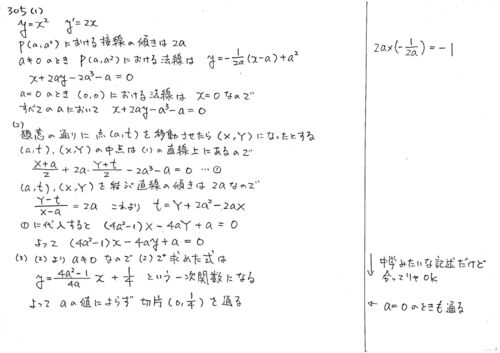 305 (1)
y=x² y'=2x
P(a,a²)における接線の傾きは2a
a≠0のとき P(a,a²)における法線は y=-1/2a(x-a)+a²
x+2ay-2a³-a=0
a=0のとき (0,0)における法線は x=0なので
すべてのaにおいて x+2ay-a³-a=0
(2)
題意の通りに点(a,t)を移動させたら(X,Y)になったとする
(a,t),(X,Y)の中点は(1)の直線上にあるので
X+a/2+2a・Y+t/2-2a³-a=0 …①
(a,t),(X,Y)を結ぶ直線の傾きは2aなので
Y-t/X-a=2a これより t=Y+2a²-2aX
①に代入すると (4a²-1)X-4aY+a=0
よって (4a²-1)x-4ay+a=0
(3) (2)よりa≠0なので(2)で求めた式は
y=4a²-1/4a x+1/4 という一次関数になる
よってaの値によらず切片(0,1/4)を通る
2a×(-1/2a)=-1
↓ 中学みたいな記述だけど
合ってりゃOK
← a=0のときも通る